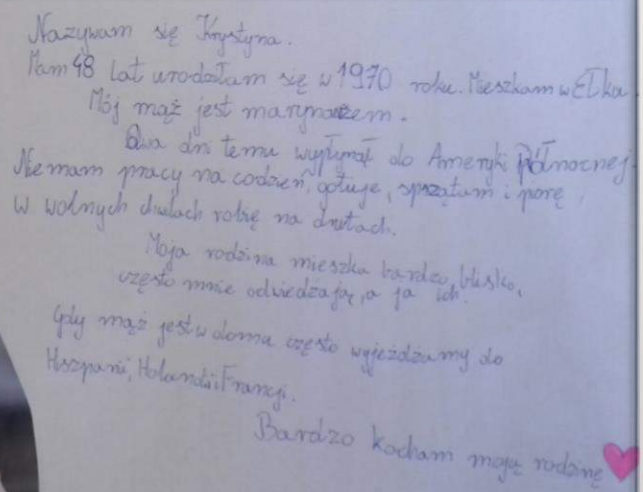 Nazywam się Krystyna.
Mam 48 lat urodziłam się w 1970 roku. Mieszkam w Ełka.
Mój mąż jest marynarzem.
Dwa dni temu wypłynął do Ameryki Północnej.
Nie mam pracy na codzień, gotuje, sprzątam i piorę,
W wolnych chwilach robię na drutach.
Moja rodzina mieszka bardzo blisko,
często mnie odwiedzają, a ja ich.
Gdy mąż jest w domu często wyjeżdżamy do
Hiszpanii, Holandii i Francji.
Bardzo kocham moją rodzinę